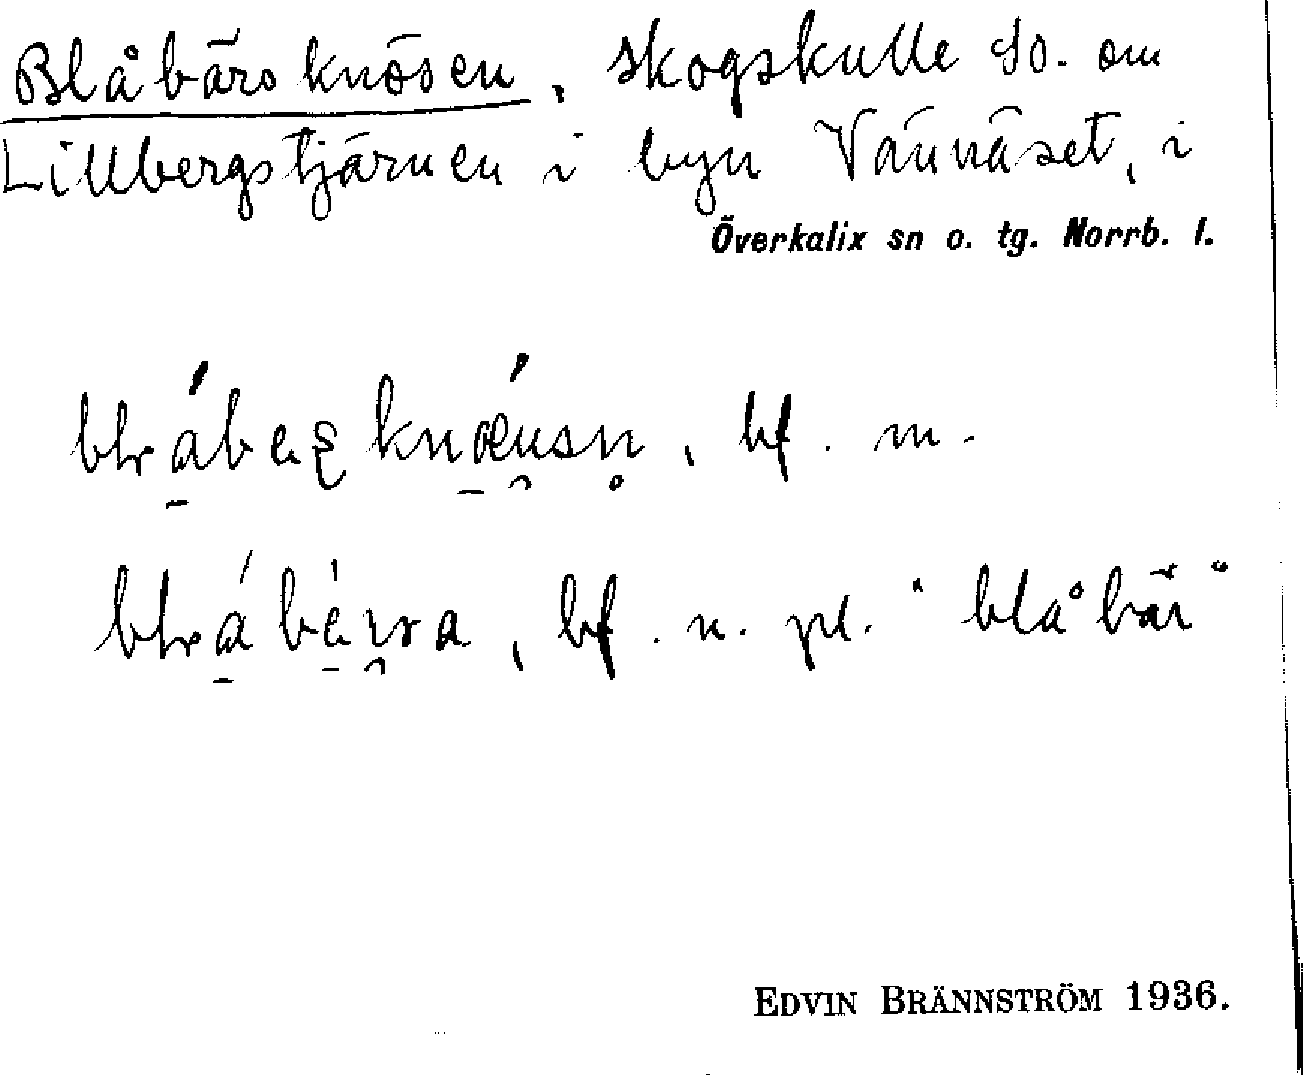 Blåbärsknösen, skogskulle So. om
Lillbergstjärnen i byn Vännäset, i
Överkalix sn o. tg. Norrb. l.
bf. m.
bf. n. pl. "blåbär"
EDVIN BRÄNNSTRÖM 1936.